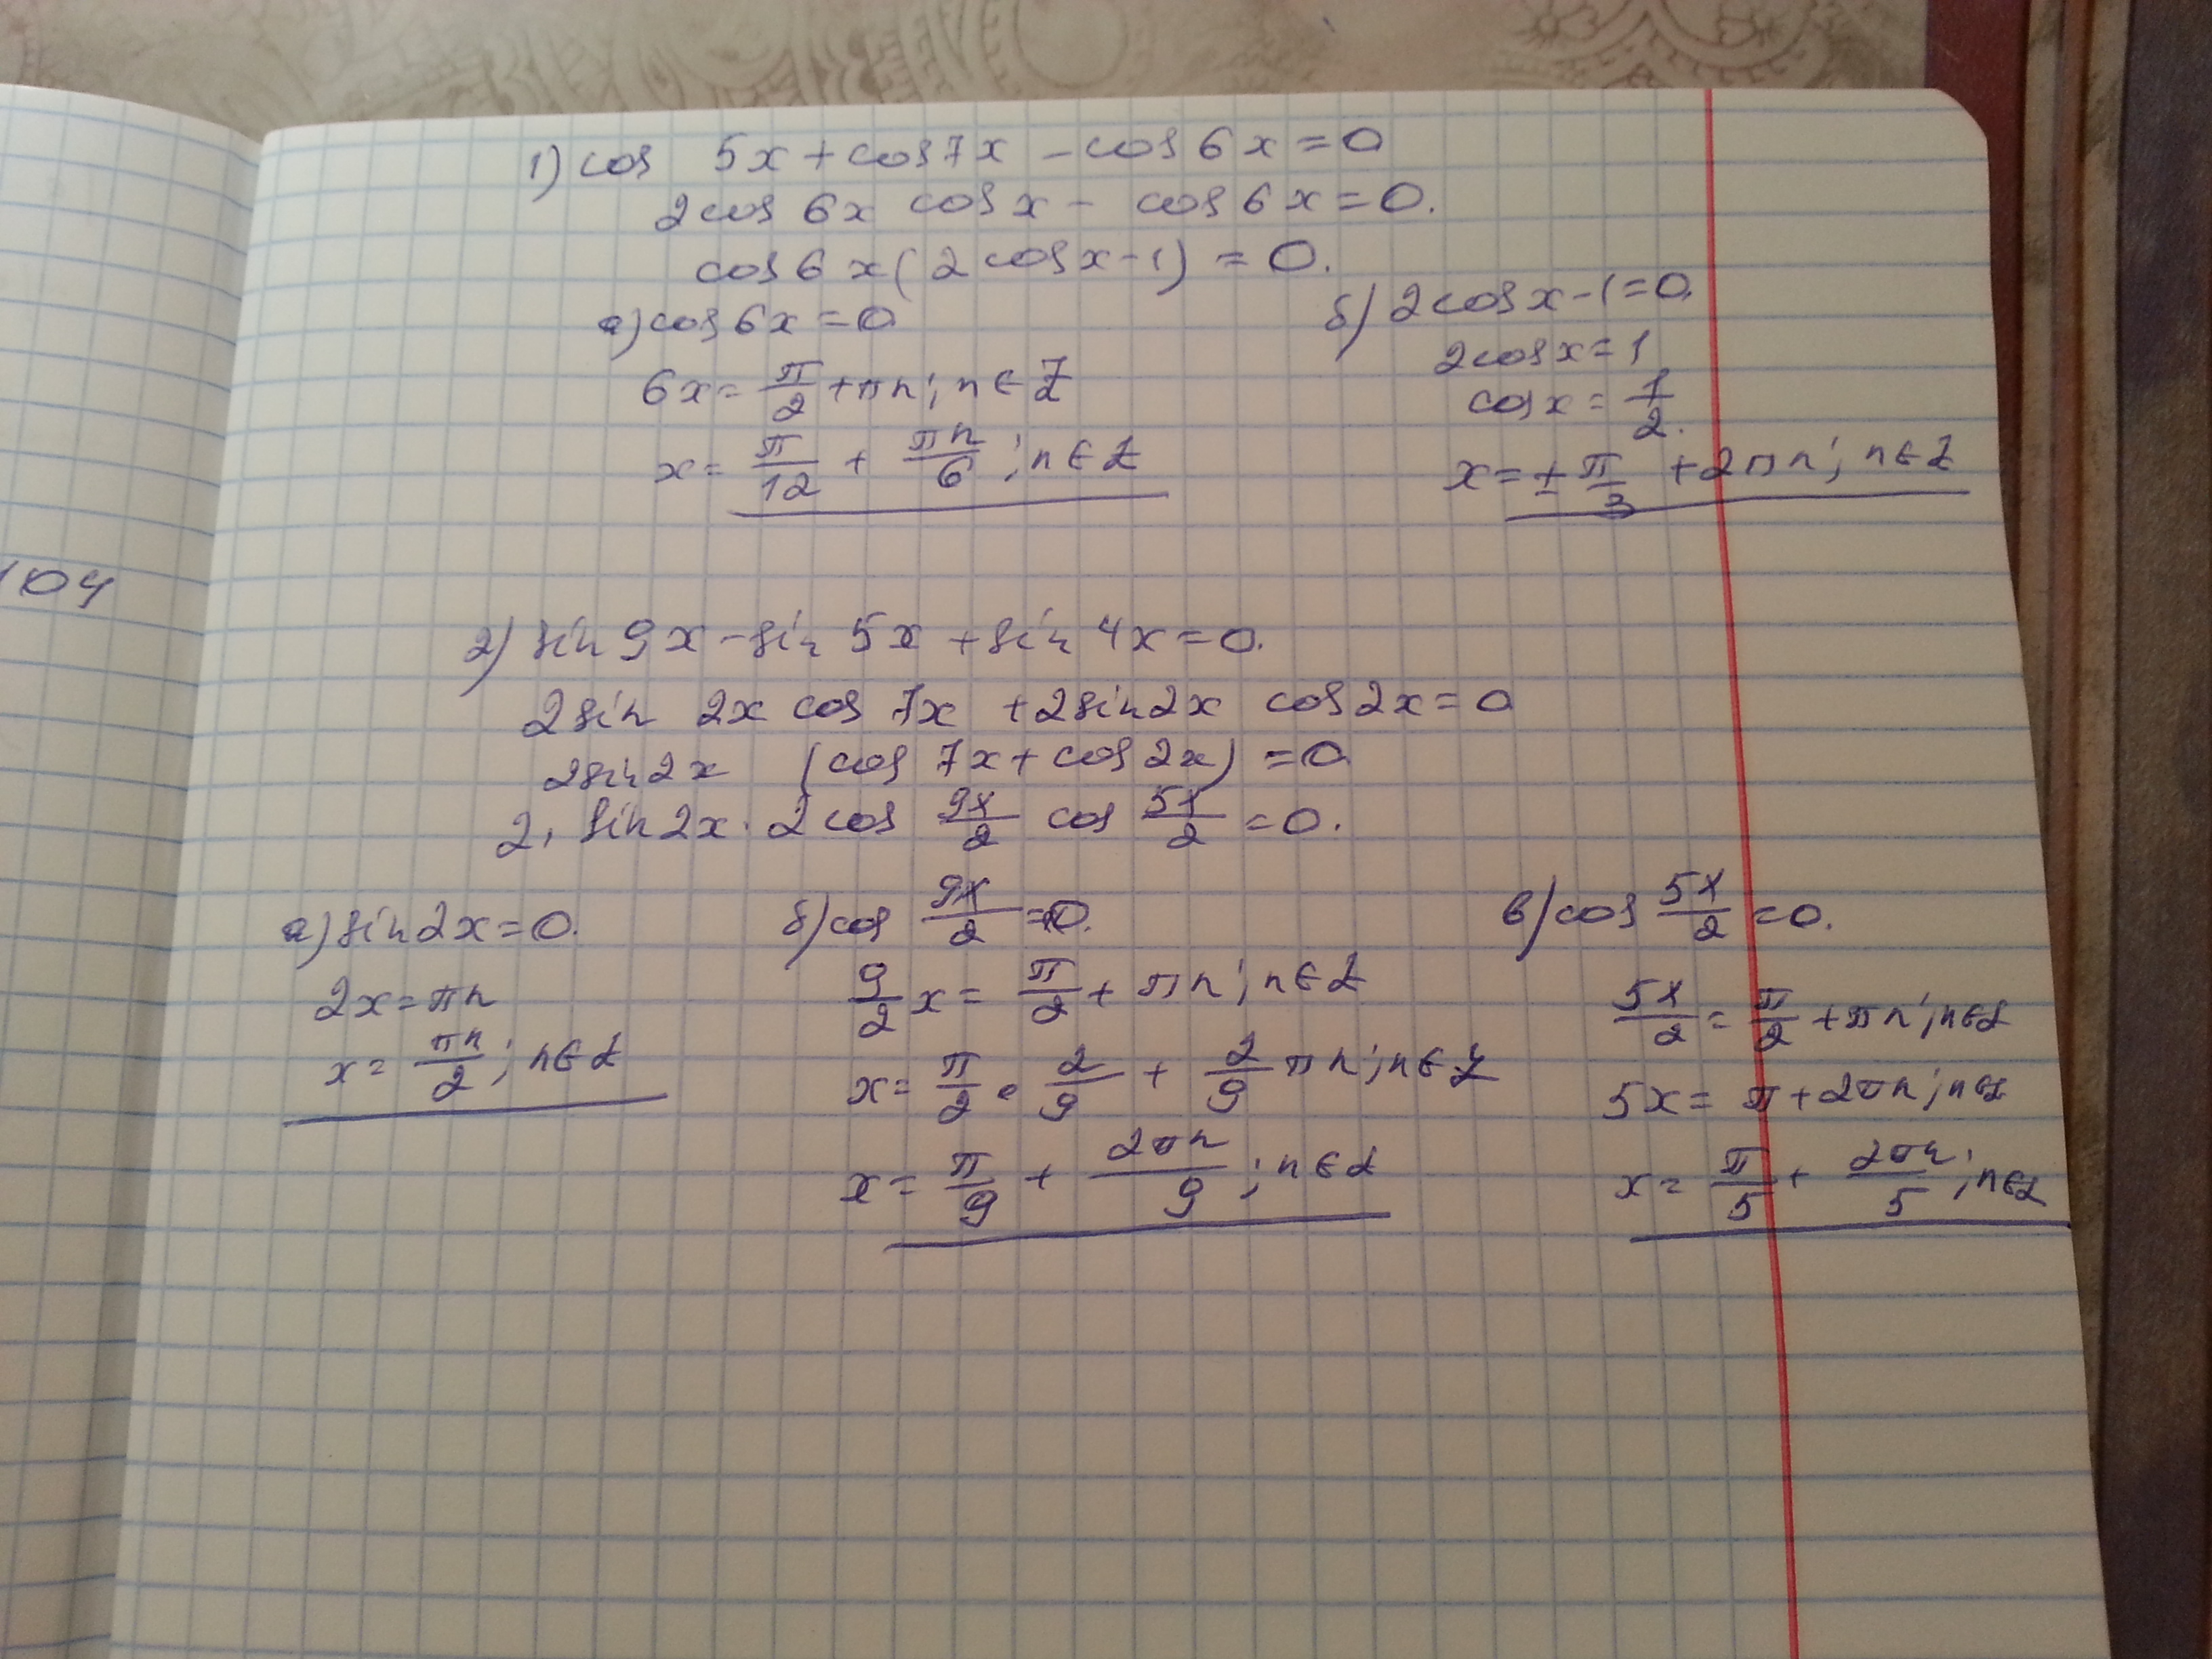 1) cos 5x + cos 7x - cos 6x = 0
2 cos 6x cos x - cos 6x = 0.
cos 6x (2 cos x - 1) = 0.
а) cos 6x = 0
6x = π/2 + πn; n ∈ Z
x = π/12 + πn/6; n ∈ Z
б) 2 cos x - 1 = 0.
2 cos x = 1
cos x = 1/2.
x = ± π/3 + 2πn; n ∈ Z
104
2) sin 9x - sin 5x + sin 4x = 0.
2 sin 2x cos 7x + 2 sin 2x cos 2x = 0
2 sin 2x (cos 7x + cos 2x) = 0
2 · sin 2x · 2 cos 9x/2 cos 5x/2 = 0.
а) sin 2x = 0.
2x = πn
x = πn/2; n ∈ Z
б) cos 9x/2 = 0.
9/2 x = π/2 + πn; n ∈ Z
x = π/2 · 2/9 + 2/9 πn; n ∈ Z
x = π/9 + 2πn/9; n ∈ Z
в) cos 5x/2 = 0.
5x/2 = π/2 + πn; n ∈ Z
5x = π + 2πn; n ∈ Z
x = π/5 + 2πn/5; n ∈ Z